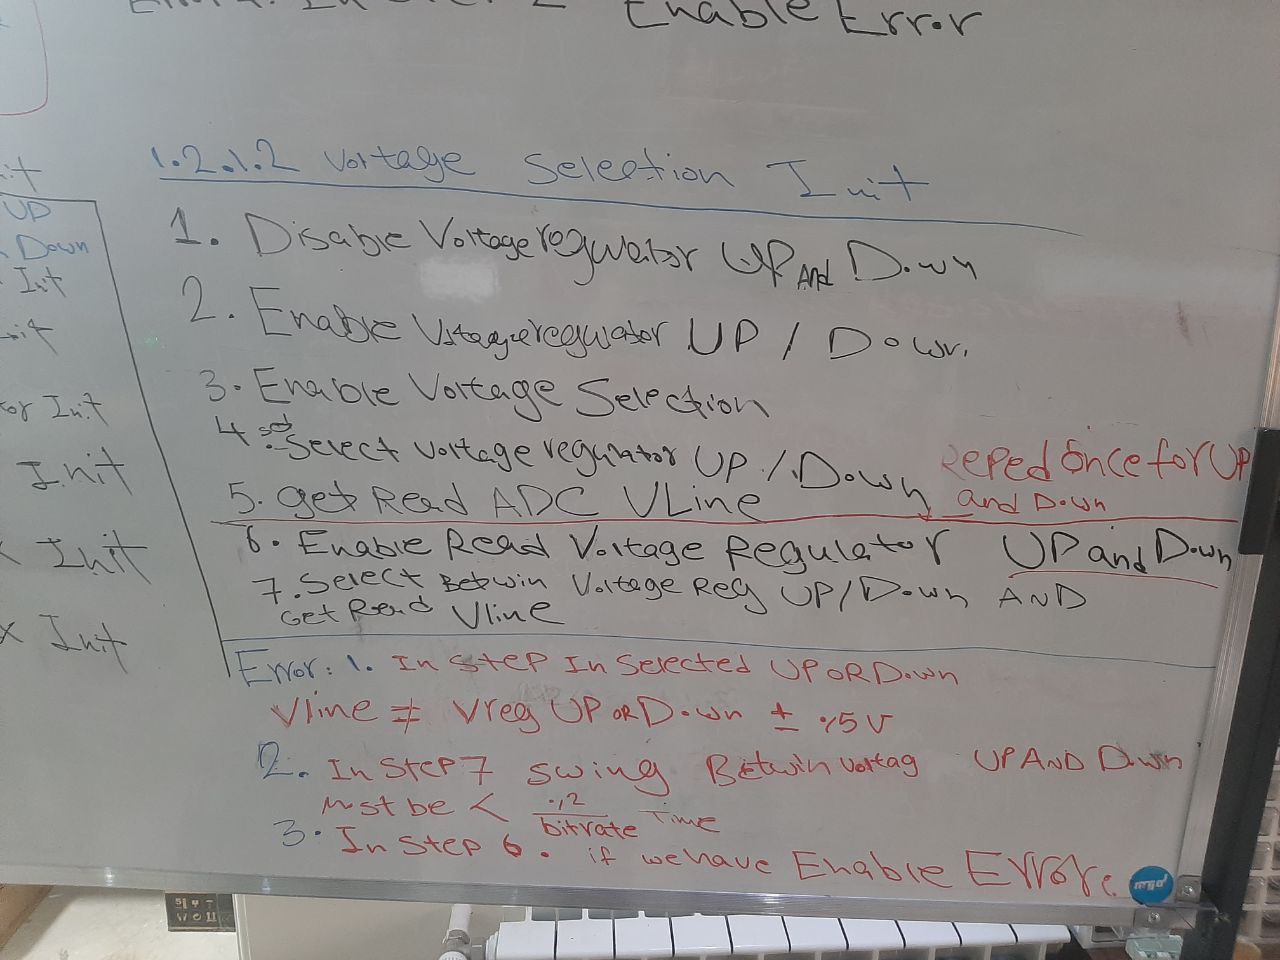 Enable Error
1.2.1.2 Voltage Selection Init
1. Disable Voltage regulator UP And Down
2. Enable Voltage regulator UP / Down
3. Enable Voltage Selection
4. Select voltage regulator UP / Down
Reped once for UP
and Down
5. get Read ADC VLine
6. Enable Read Voltage Regulator UP and Down
7. Select Betwin Voltage Reg UP/Down AND
Get Read Vline
Error: 1. In Step In Selected UP OR Down
Vline ≠ Vreg UP OR Down ± %5 V
2. In Step 7 swing Betwin voltag UP AND Down
must be < 0,2 / bitrate Time
3. In Step 6. if we have Enable Error.
UP
Down
Init
or Init
Init
Init
Init